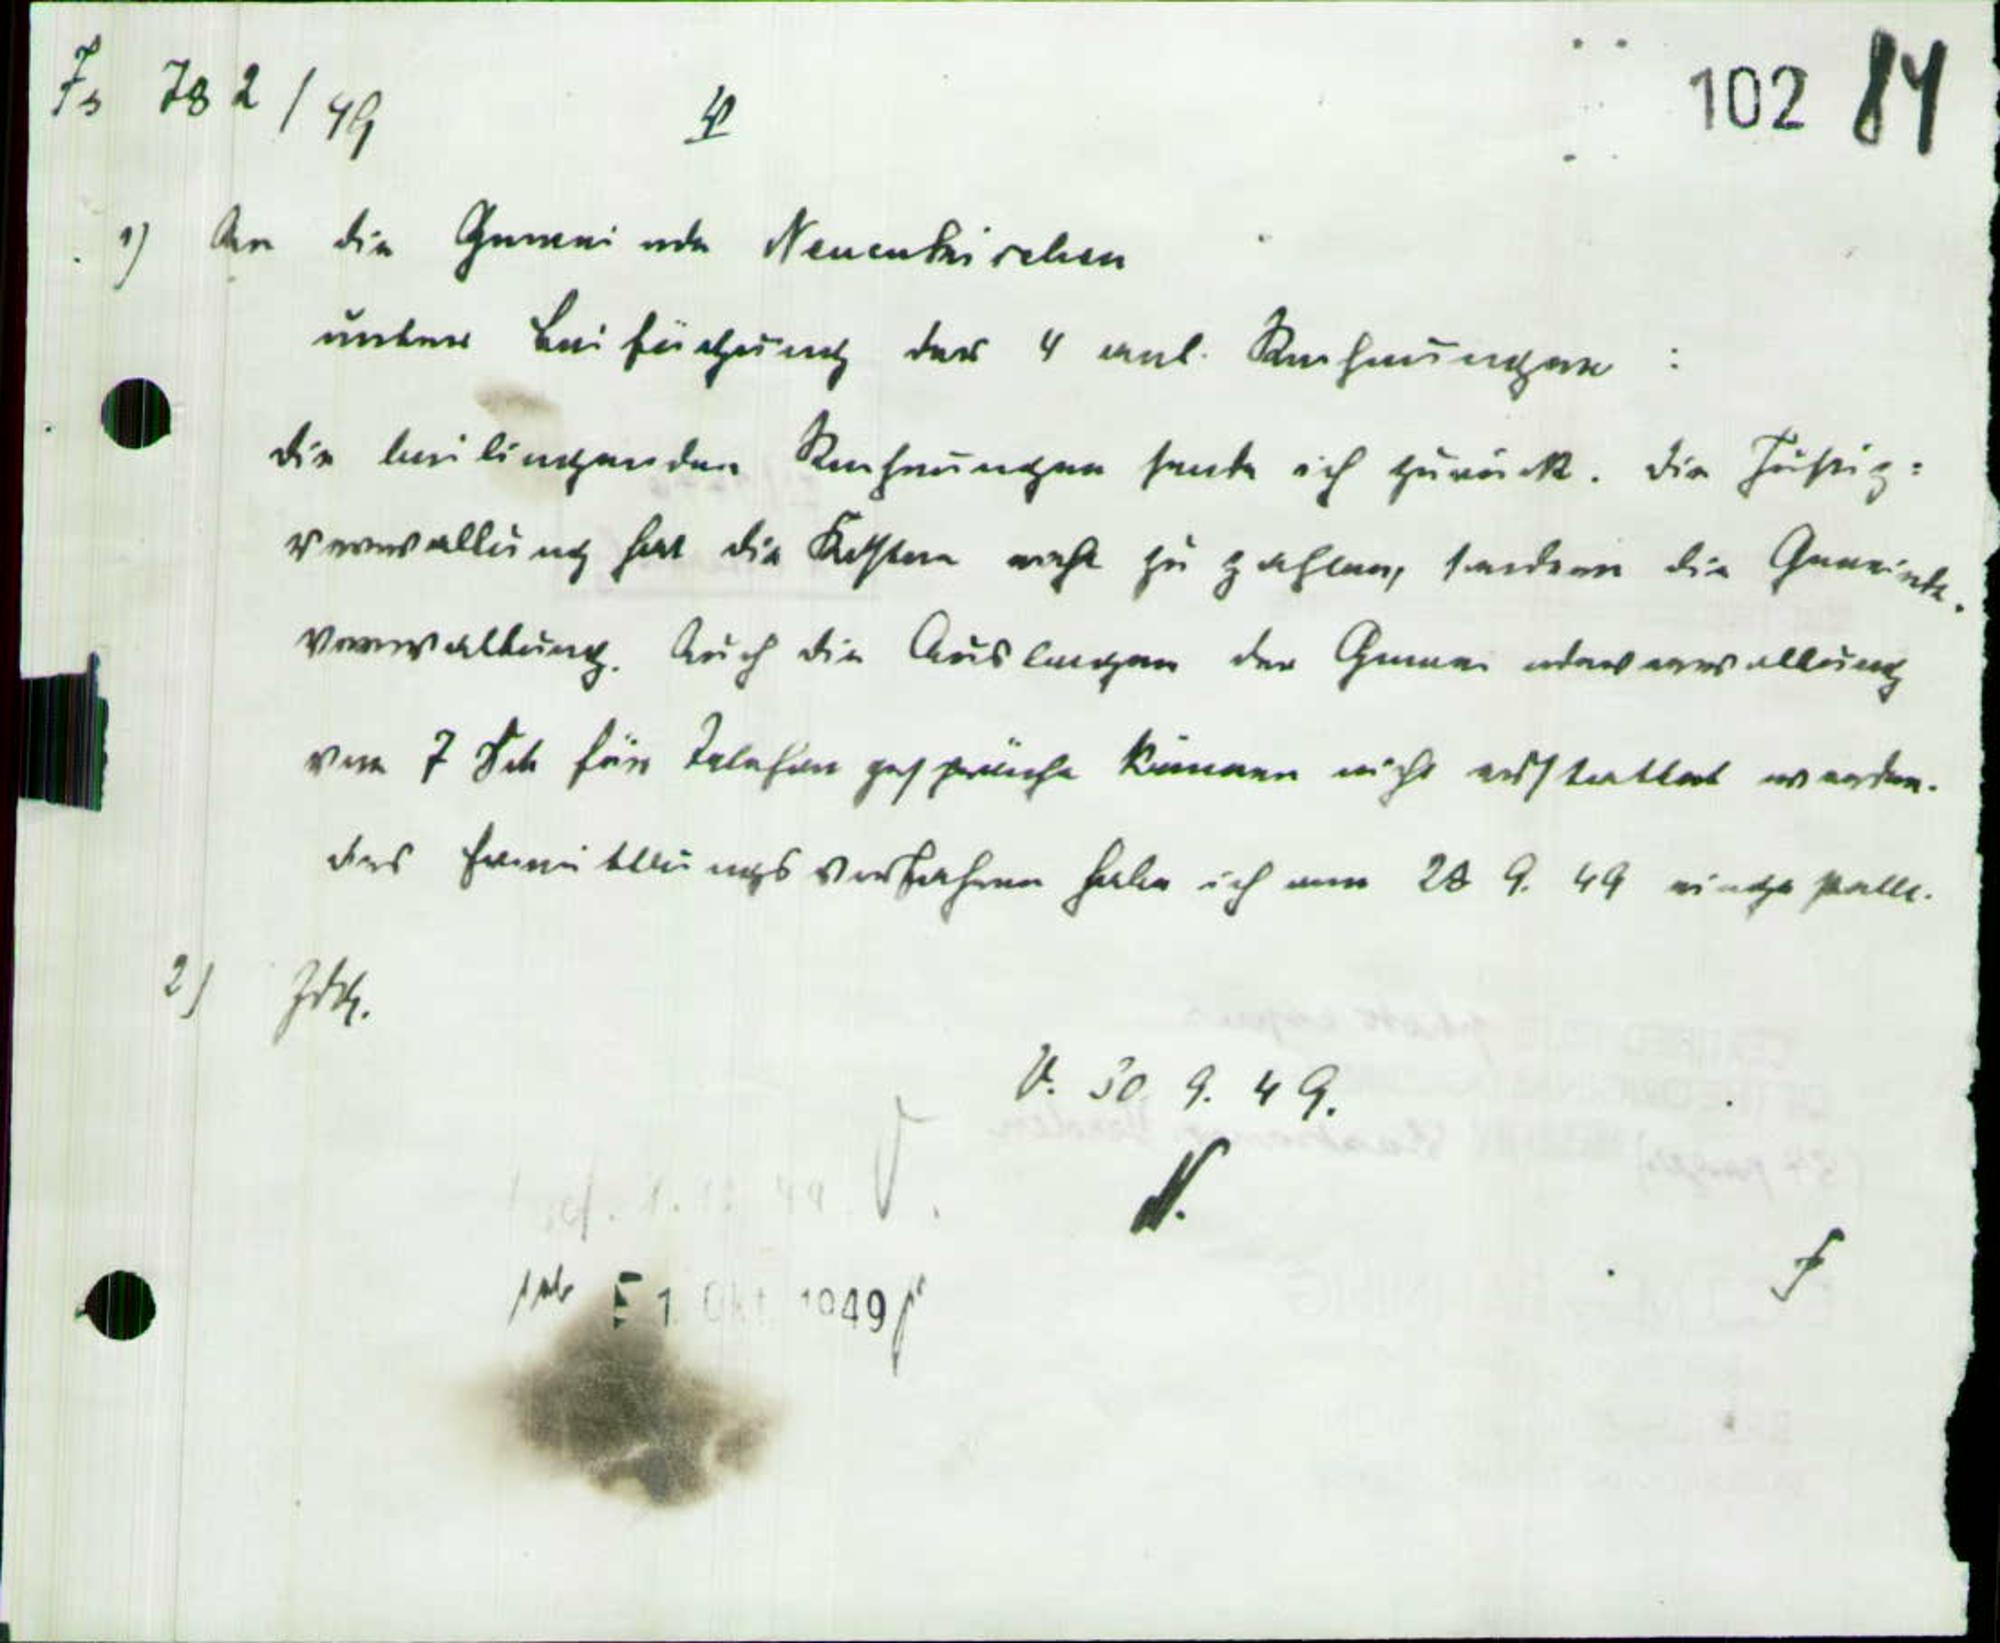 7 Js 782/49
V
102 84
1) An die Gemeinde Neuenkirchen
unter Beifügung der 4 anl. Rechnungen :
Die beiliegenden Rechnungen sende ich zurück. Die Justiz=
verwaltung hat die Kosten nicht zu zahlen, sondern die Gemeinde.
verwaltung. Auch die Auslagen der Gemeindeverwaltung
von 7 DM für Telefongespräche können nicht erstattet werden.
Das Ermittlungsverfahren habe ich am 28 9. 49 eingestellt.
2) ZdA.
V. 30. 9. 49.
N.
1. Okt. 1949